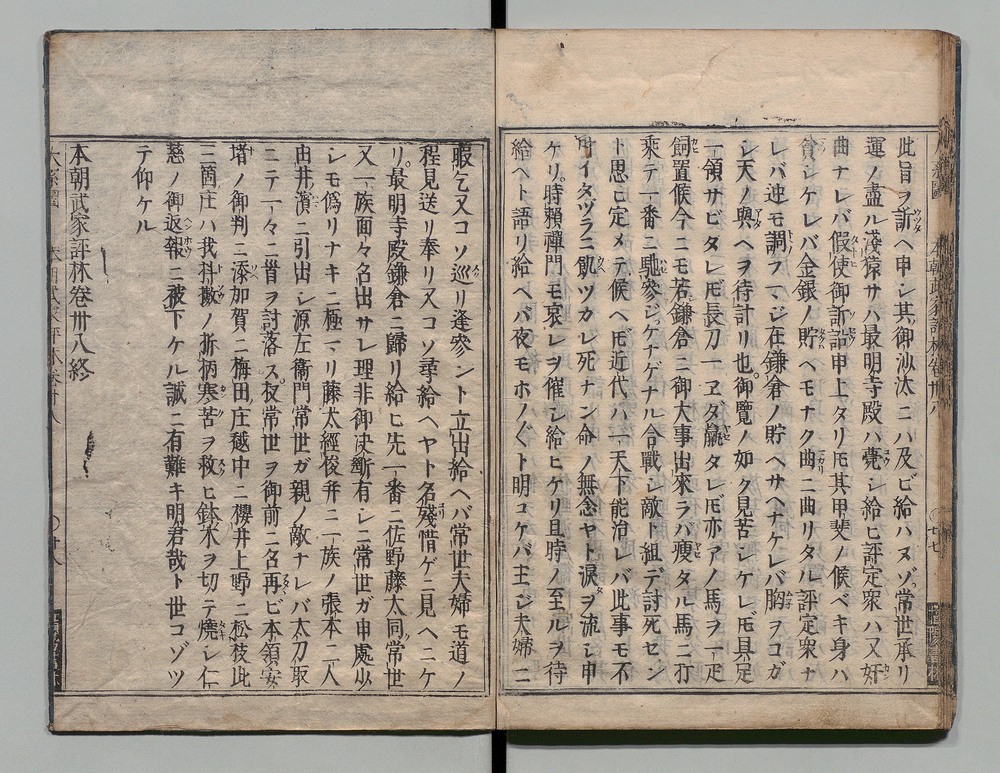 此旨ヲ訴ヘ申シ其御沙汰ニハ及ビ給ハヌゾ常世承リ
運ノ盡ル淺猿サハ最明寺殿ハ薨シ給ヒ評定衆ハ又奸
曲ナレバ假使御訴詔申上タリ𪜈其甲斐ノ候ベキ身ハ
貧シケレバ金銀ノ貯ヘモナク曲ニ曲リタル評定衆ナ
レバ迚モ調フマジ在鎌倉ノ貯ヘサヘナケレバ胸ヲコガ
シ天ノ與ヘヲ待計リ也。御覽ノ如ク見苦シケレ𪜈具足
一領サビタレ𪜈長刀一エダ羸タレ𪜈亦アノ馬ヲ一疋
飼置候今ニモ若鎌倉ニ御大事出來ラバ瘦タル馬ニ打
乘テ一番ニ馳參ジケナゲナル合戰シ敵ト組デ討死セン
ト思ヒ定メテ候ヘ𪜈近代ハ一天下能治レバ此事モ不
叶イタヅラニ飢ツカレ死ナン命ノ無念ヤト淚ヲ流シ申
ケリ。時賴禪門モ哀レヲ催シ給ヒケリ且時ノ至ルヲ待
給ヘト語リ給ヘバ夜モホノ〲ト明ユケバ主ジ夫婦ニ
暇乞又コソ巡リ逢參ント立出給ヘバ常世夫婦モ道ノ
程見送リ奉リ又コソ尋給ヘヤト名殘惜ゲニ見ヘニケ
リ。最明寺殿鎌倉ニ歸リ給ヒ先一番ニ佐野藤太同常世
又一族面々名出サレ理非御决斷有シニ常世ガ申處少
シモ僞リナキニ極マリ藤太經俊幷ニ一族ノ張本二人
由井濱ニ引出シ源左衞門常世ガ親ノ敵ナレバ太刀取
ニテ一々ニ首ヲ討落ス。扨常世ヲ御前ニ召再ビ本領安
堵ノ御判ニ添加賀ニ梅田庄越中ニ櫻井上野ニ松枝此
三箇庄ハ我抖擻ノ折柄寒苦ヲ救ヒ鉢木ヲ切テ燒シ仁
慈ノ御返報ニ被下ケル誠ニ有難キ明君哉ト世コゾツ
テ仰ケル
本朝武家評林卷卅八終